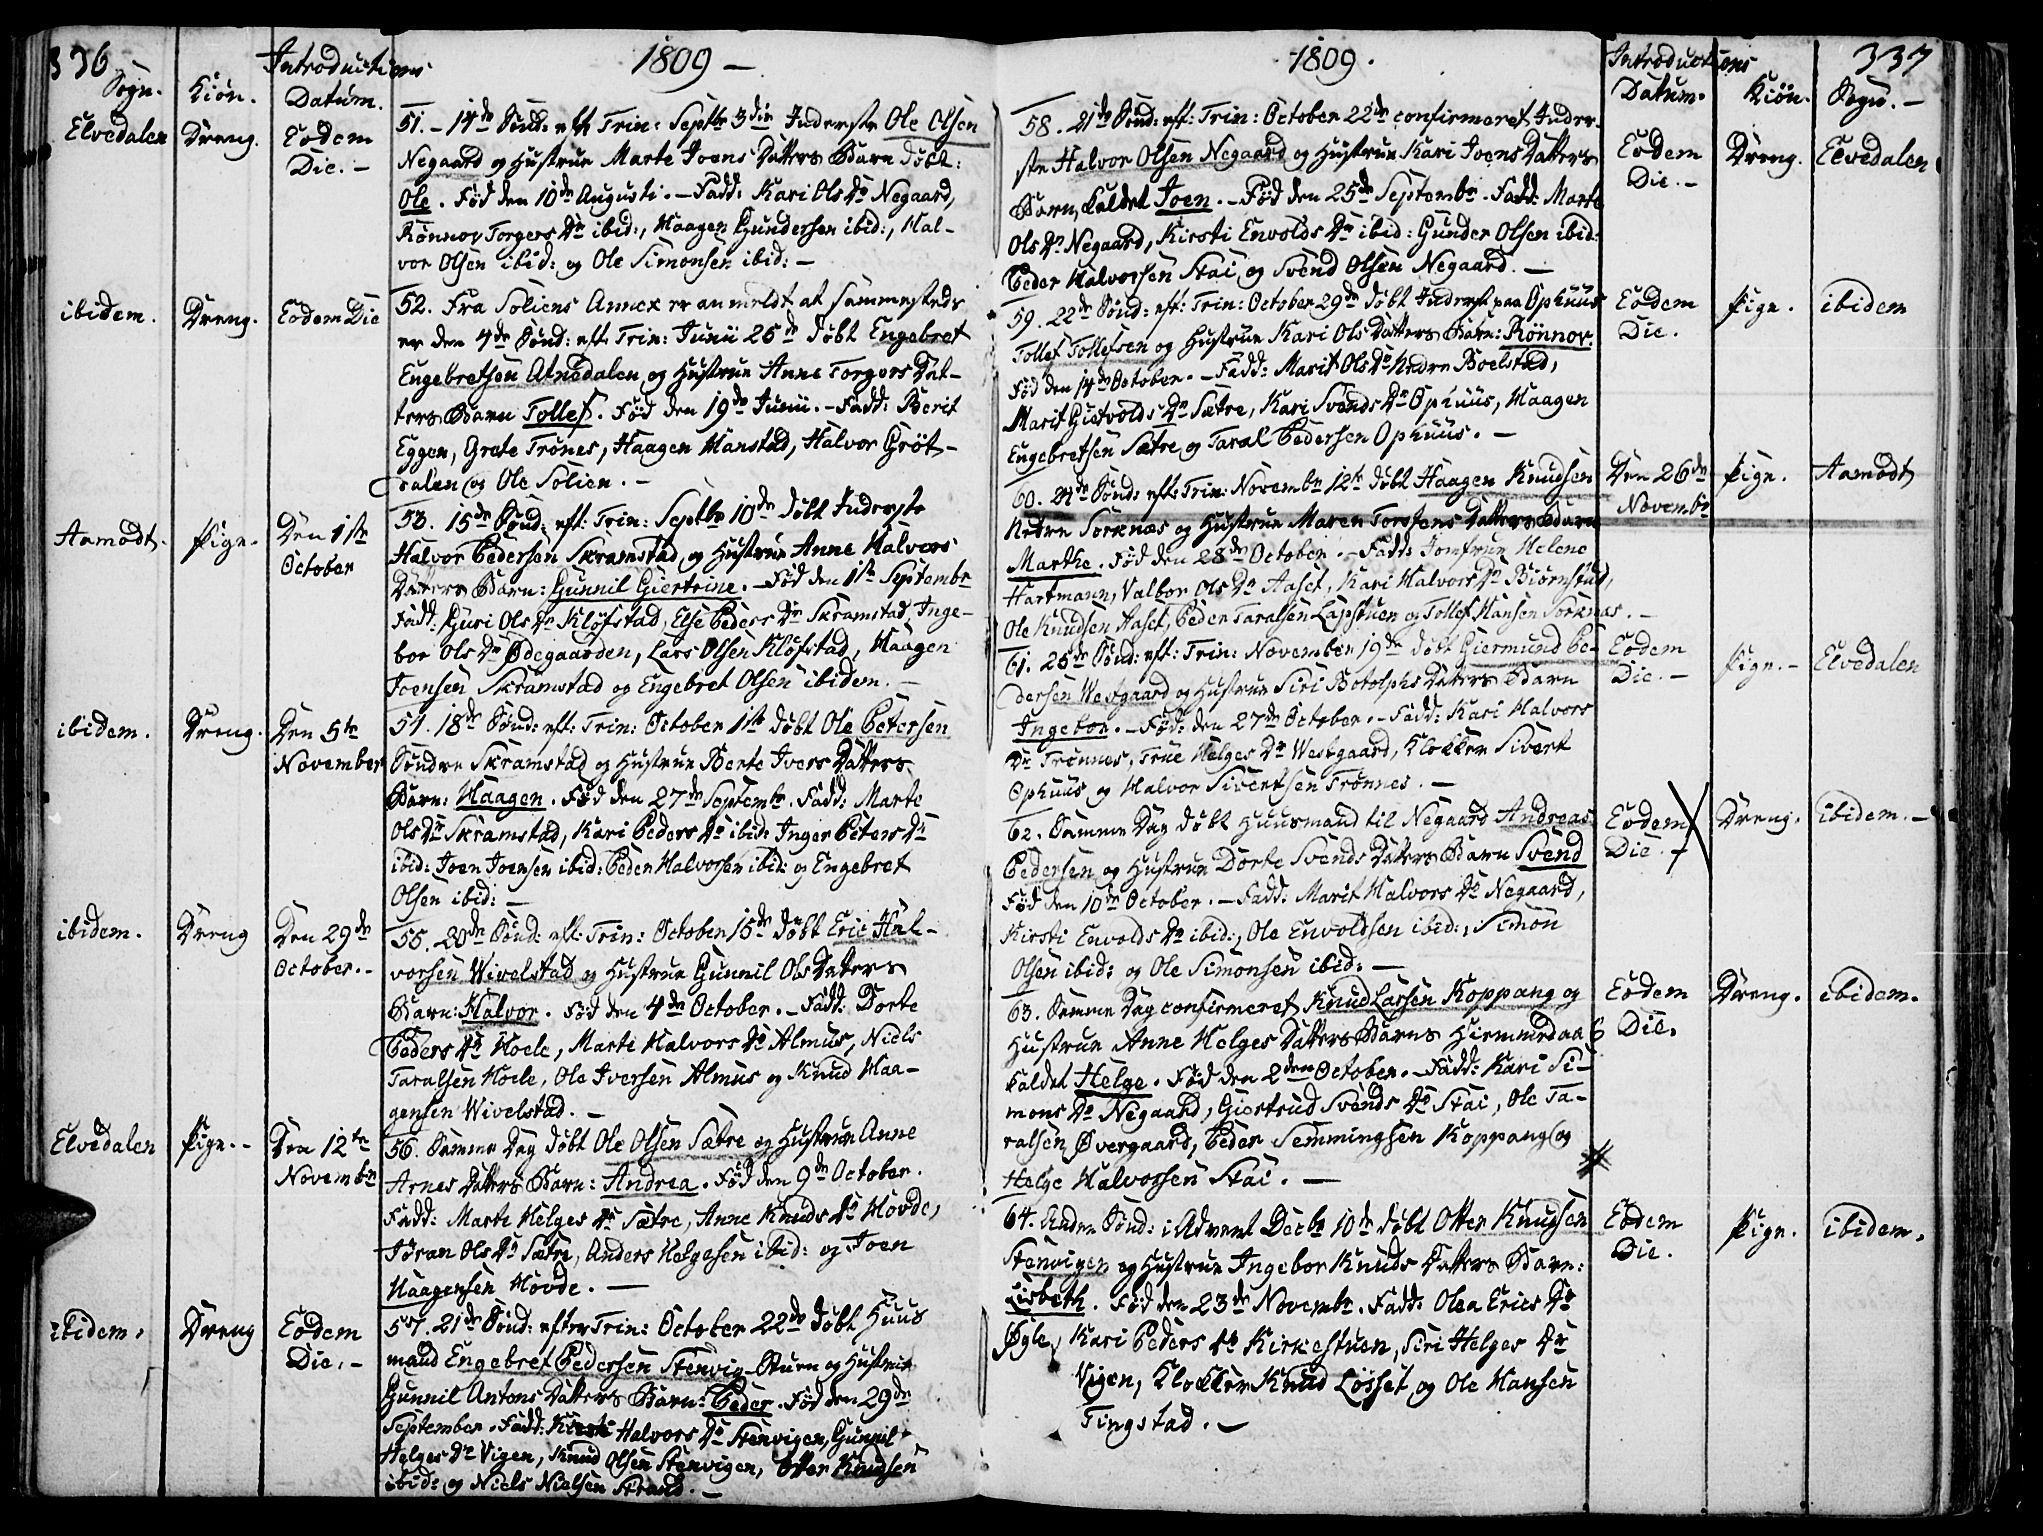 336
Introductions
Sogn. Kiön. Datum.
1809 –
Elvedalen Dreng. Eodem Die. –
51. – 14de Sönd: eft: Trin: Septbr 3die Inderste Ole Olsen
Negaard og Hustrue Marte Joens Datters Barn döbt:
Ole. Föd den 10de Augusti. – Fadd: Kari Ols Dr Negaard,
Rönnov Torgers Dr ibid:, Haagen Gundersen ibid:, Hal-
vor Olsen ibid: og Ole Simonsen ibid: –
ibidem. Dreng. Eodem Die
52. Fra Soliens Annex er anmeldt at sammesteds
er den 4de Sönd: eft: Trin: Junii 25de döbt Engebret
Engebretsen Atnedalen og Hustrue Anne Torgers Dat-
ters Barn Tollef. Föd den 19de Junii. – Fadd: Berit
Eggen, Grete Trönes, Haagen Hanstad, Halvor Gröt-
dalen og Ole Solien. –
Aamodt. Pige. Den 1ste October
53. 15de Sönd: eft: Trin: Septbr 10de döbt Inderste
Halvor Pedersen Skramstad og Hustrue Anne Halvors
Datters Barn: Gunnil Giertrine. – Föd den 1ste Septembr
Fadd: Guri Ols Dr Klöfstad, Else Peders Dr Skramstad, Inge-
bor Ols Dr Ödegaarden, Lars Olsen Klöfstad, Haagen
Joensen Skramstad og Engebret Olsen ibidem. –
ibidem. Dreng. Den 5te November
54. 18de Sönd: eft: Trin: October 1ste döbt Ole Petersen
Söndre Skramstad og Hustrue Berte Ivers Datters
Barn: Haagen. Föd den 27de Septembr. Fadd: Marte
Ols Dr Skramstad, Kari Peders Dr ibid: Inger Peters Dr
ibid: Joen Joensen ibid: Peder Halvorsen ibid: og Engebret
Olsen ibid: –
ibidem. Dreng Den 29de October. –
55. 20de Sönd: eft: Trin: October 15de döbt Eric Hal-
vorsen Wivelstad og Hustrue Gunnil Ols Datters
Barn: Halvor. Föd den 4de October. – Fadd: Dorte
Peders Dr Hoele, Marte Halvors Dr Almus, Niels
Taralsen Hoele, Ole Iversen Almus og Knud Haa-
gensen Wivelstad. –
Elvedalen Pige. – Den 12te Novembr
56. Samme Dag döbt Ole Olsen Sætre og Hustrue Anne
Arnes Datters Barn: Andrea. Föd den 9de October.
Fadd: Marte Helges Dr Sætre, Anne Knuds Dr Hovde,
Jöran Ols Dr Sætre, Anders Helgesen ibid: og Joen
Haagensen Hovde. –
ibidem. Dreng Eodem Die. –
57. 21de Sönd: efter Trin: October 22de döbt Huus
mand Engebret Pedersen Stenvig-Stuen og Hustrue
Gunnil Antons Datters Barn: Peder. Föd den 29de
September. Fadd: Kirsti Halvors Dr Stenvigen, Gunnil
Helges Dr Vigen, Knud Olsen Stenvigen, Otter Knudsen
ibid: og Niels Nielsen Strand. –
337
Introductions
1809. Datum. Kiön. Sogn. –
58. 21de Sönd: eft: Trin: October 22de confirmeret Inder-
ste Halvor Olsen Negaard og Hustrue Kari Joens Datters
Barn, kaldet Joen. – Föd den 25de Septembr. Fadd: Marte
Ols Dr Negaard, Kirsti Envolds Dr ibid: Gunder Olsen ibid:
Peder Halvorsen Stai og Svend Olsen Negaard. –
Eodem Die. – Dreng. Elvedalen
59. 22de Sönd: eft: Trin: October 29de döbt Inderst paa Ophuus
Tollef Tollefsen og Hustrue Kari Ols Datters Barn: Rönnov
Föd den 14de October. – Fadd: Marit Ols Dr Nedre Boelstad,
Marit Gietvolds Dr Sætre, Kari Svends Dr Ophuus, Haagen
Engebretsen Sætre og Taral Pedersen Ophuus. –
Eodem Die. Pige. ibidem
60. 24de Sönd: eft: Trin: Novembr 12te döbt Haagen Knudsen
Nedre Sorknæs og Hustrue Maren Torstens Datters Barn
Marthe. Föd den 28de October. – Fadd: Jomfrue Helene
Hartmann, Valbor Ols Dr Aaset, Kari Halvors Dr Biörnstad,
Ole Knudsen Aaset, Peder Taralsen Lapstuen og Tollef Hansen Sorknæs. –
Den 26de Novembr Pige. Aamodt
61. 25de Sönd: eft: Trin: November 19de döbt Giermund Pe-
dersen Westgaard og Hustrue Siri Botolphs Datters Barn
Ingebor. – Föd: den 27de October. – Fadd: Kari Halvors
Dr Trönnes, True Helges Dr Westgaard, Klokker Sivert
Ophuus og Halvor Sivertsen Trönnes. –
Eodem Die. – Pige. – Elvedalen
62. Samme Dag döbt Huusmand til Negaard Andreas
Pedersen og Hustrue Dorte Svends Datters Barn Svend
Föd den 10de October. – Fadd: Marit Halvors Dr Negaard,
Kirsti Envolds Dr ibid:, Ole Envoldsen ibid:, Simon
Olsen ibid: og Ole Simonsen ibid: –
Eodem Die. – Dreng. ibidem. –
63. Samme Dag confirmeret Knud Larsen Koppang og
Hustrue Anne Helges Datters Barns Hiemmedaab
kaldet Helge. Föd den 2den October. – Fadd: Kari Si-
mons Dr Negaard, Giertrud Svends Dr Stai, Ole Ta-
ralsen Övergaard, Peder Semmingsen Koppang og
Helge Halvorsen Stai. –
Eodem Die. Dreng. ibidem.
64. Anden Sönd: i Advent Decbr 10de döbt Otter Knudsen
Stenvigen og Hustrue Ingebor Knuds Datters Barn:
Lisbeth. Föd den 23de Novembr. Fadd: Olea Erics Dr
Ögle, Kari Peders Dr Kirkestuen, Siri Helges Dr
Vigen, Klokker Knud Lösset og Ole Hansen
Tingstad. –
Eodem Die. Pige. ibidem.